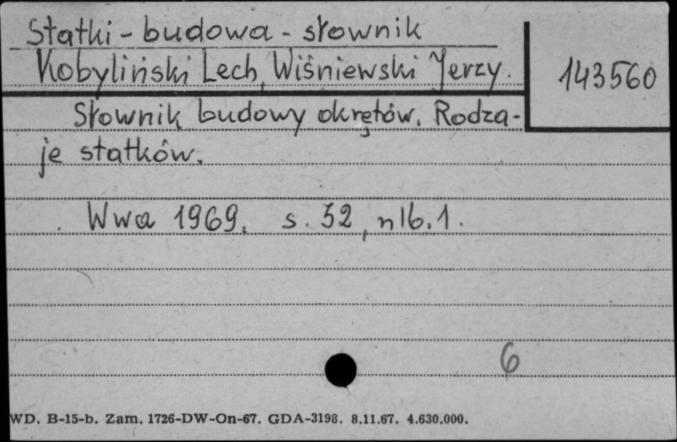 Statki - budowa - słownik
Kobyliński Lech, Wiśniewski Jerzy.
143560
Słownik budowy okrętów. Rodza-
je statków.
Wwa 1969. s. 52, nlb. 1.
6
WD. B-15-b. Zam. 1726-DW-On-67. GDA-3198. 8.11.67. 4.630.000.